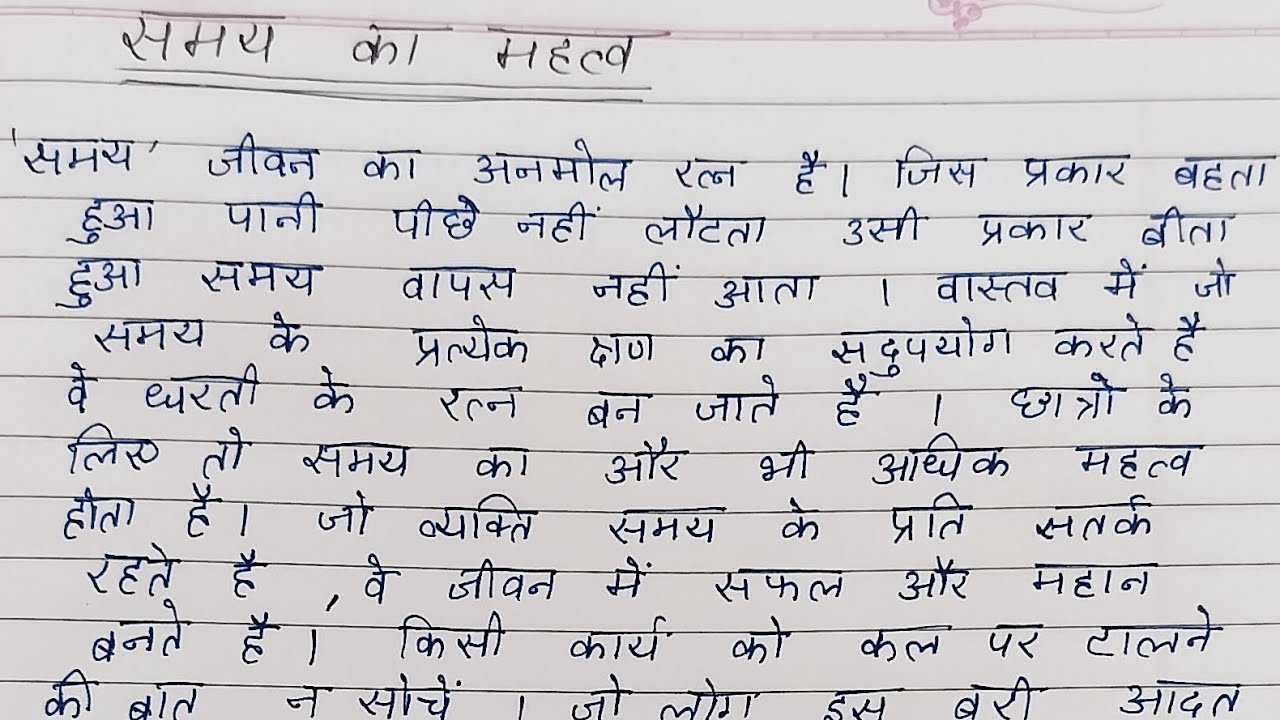 समय का महत्व
'समय' जीवन का अनमोल रत्न है। जिस प्रकार बहता
हुआ पानी पीछे नहीं लौटता उसी प्रकार बीता
हुआ समय वापस नहीं आता । वास्तव में जो
समय के प्रत्येक क्षण का सदुपयोग करते है
वे धरती के रत्न बन जाते हैं । छात्रो के
लिए तो समय का और भी अधिक महत्व
होता है। जो व्यक्ति समय के प्रति सतर्क
रहते है , वे जीवन में सफल और महान
बनते है। किसी कार्य को कल पर टालने
की बात न सोचें । जो लोग इस बुरी आदत